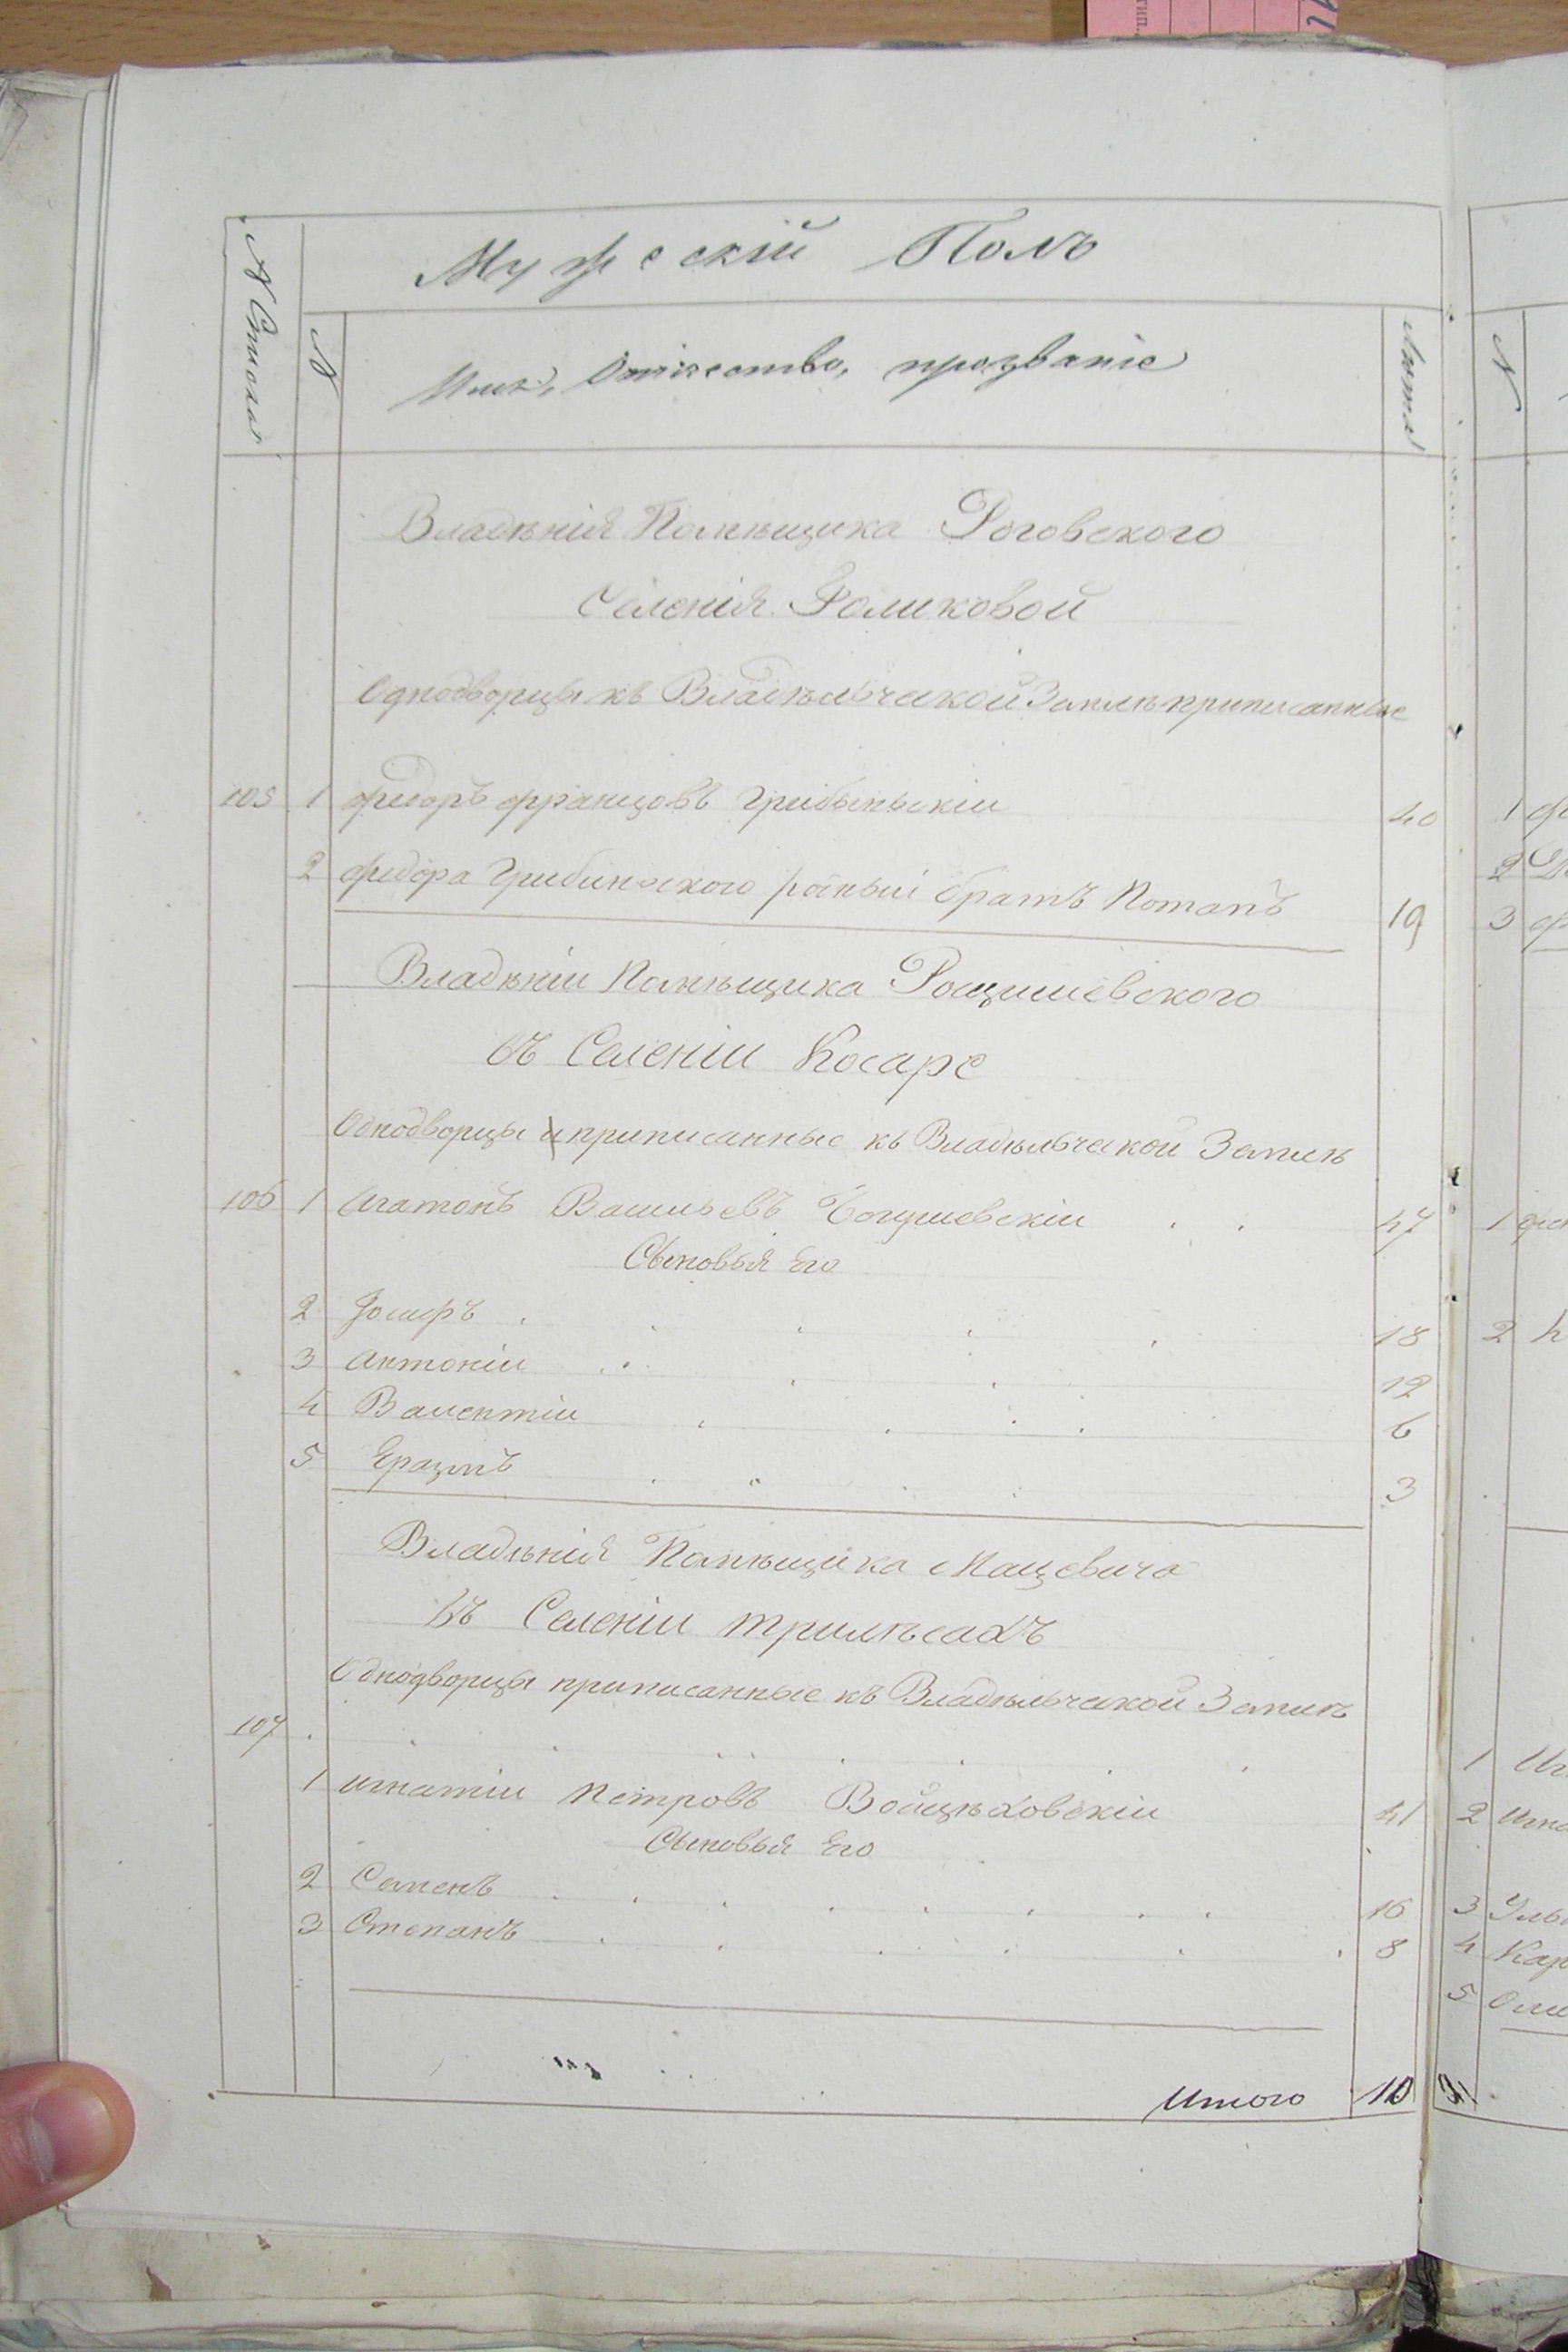 Мужескій Полъ
№ Стиховъ
№
Имя, Отчество, прозваніе
Лѣта
№
Владѣнія Помѣщика Роговского
Селенія Ромиковой
Однодворцы къ Владѣльческой Землѣ приписанные
105 1 Федоръ Францовъ Грибѣнскій 40
2 Федора Грибинского родный братъ Потапъ 19
Владѣніи Помѣщика Росцишевского
въ Селеніи Косаре
Однодворцы приписанные къ Владѣльческой Землѣ
106 1 Агатонъ Васильевъ Богушевскіи 47
Сыновья Его
2 Іосифъ 18
3 Антоніи 12
4 Валентіи 6
5 Еразмъ 3
Владѣнія Помѣщика Мацевича
въ Селеніи Трилѣсахъ
Однодворцы приписанные къ Владѣльческой Землѣ
107
1 Игнатіи Петровъ Войцѣховскіи 41
Сыновья Его
2 Семенъ 16
3 Степанъ 8
Итого 10